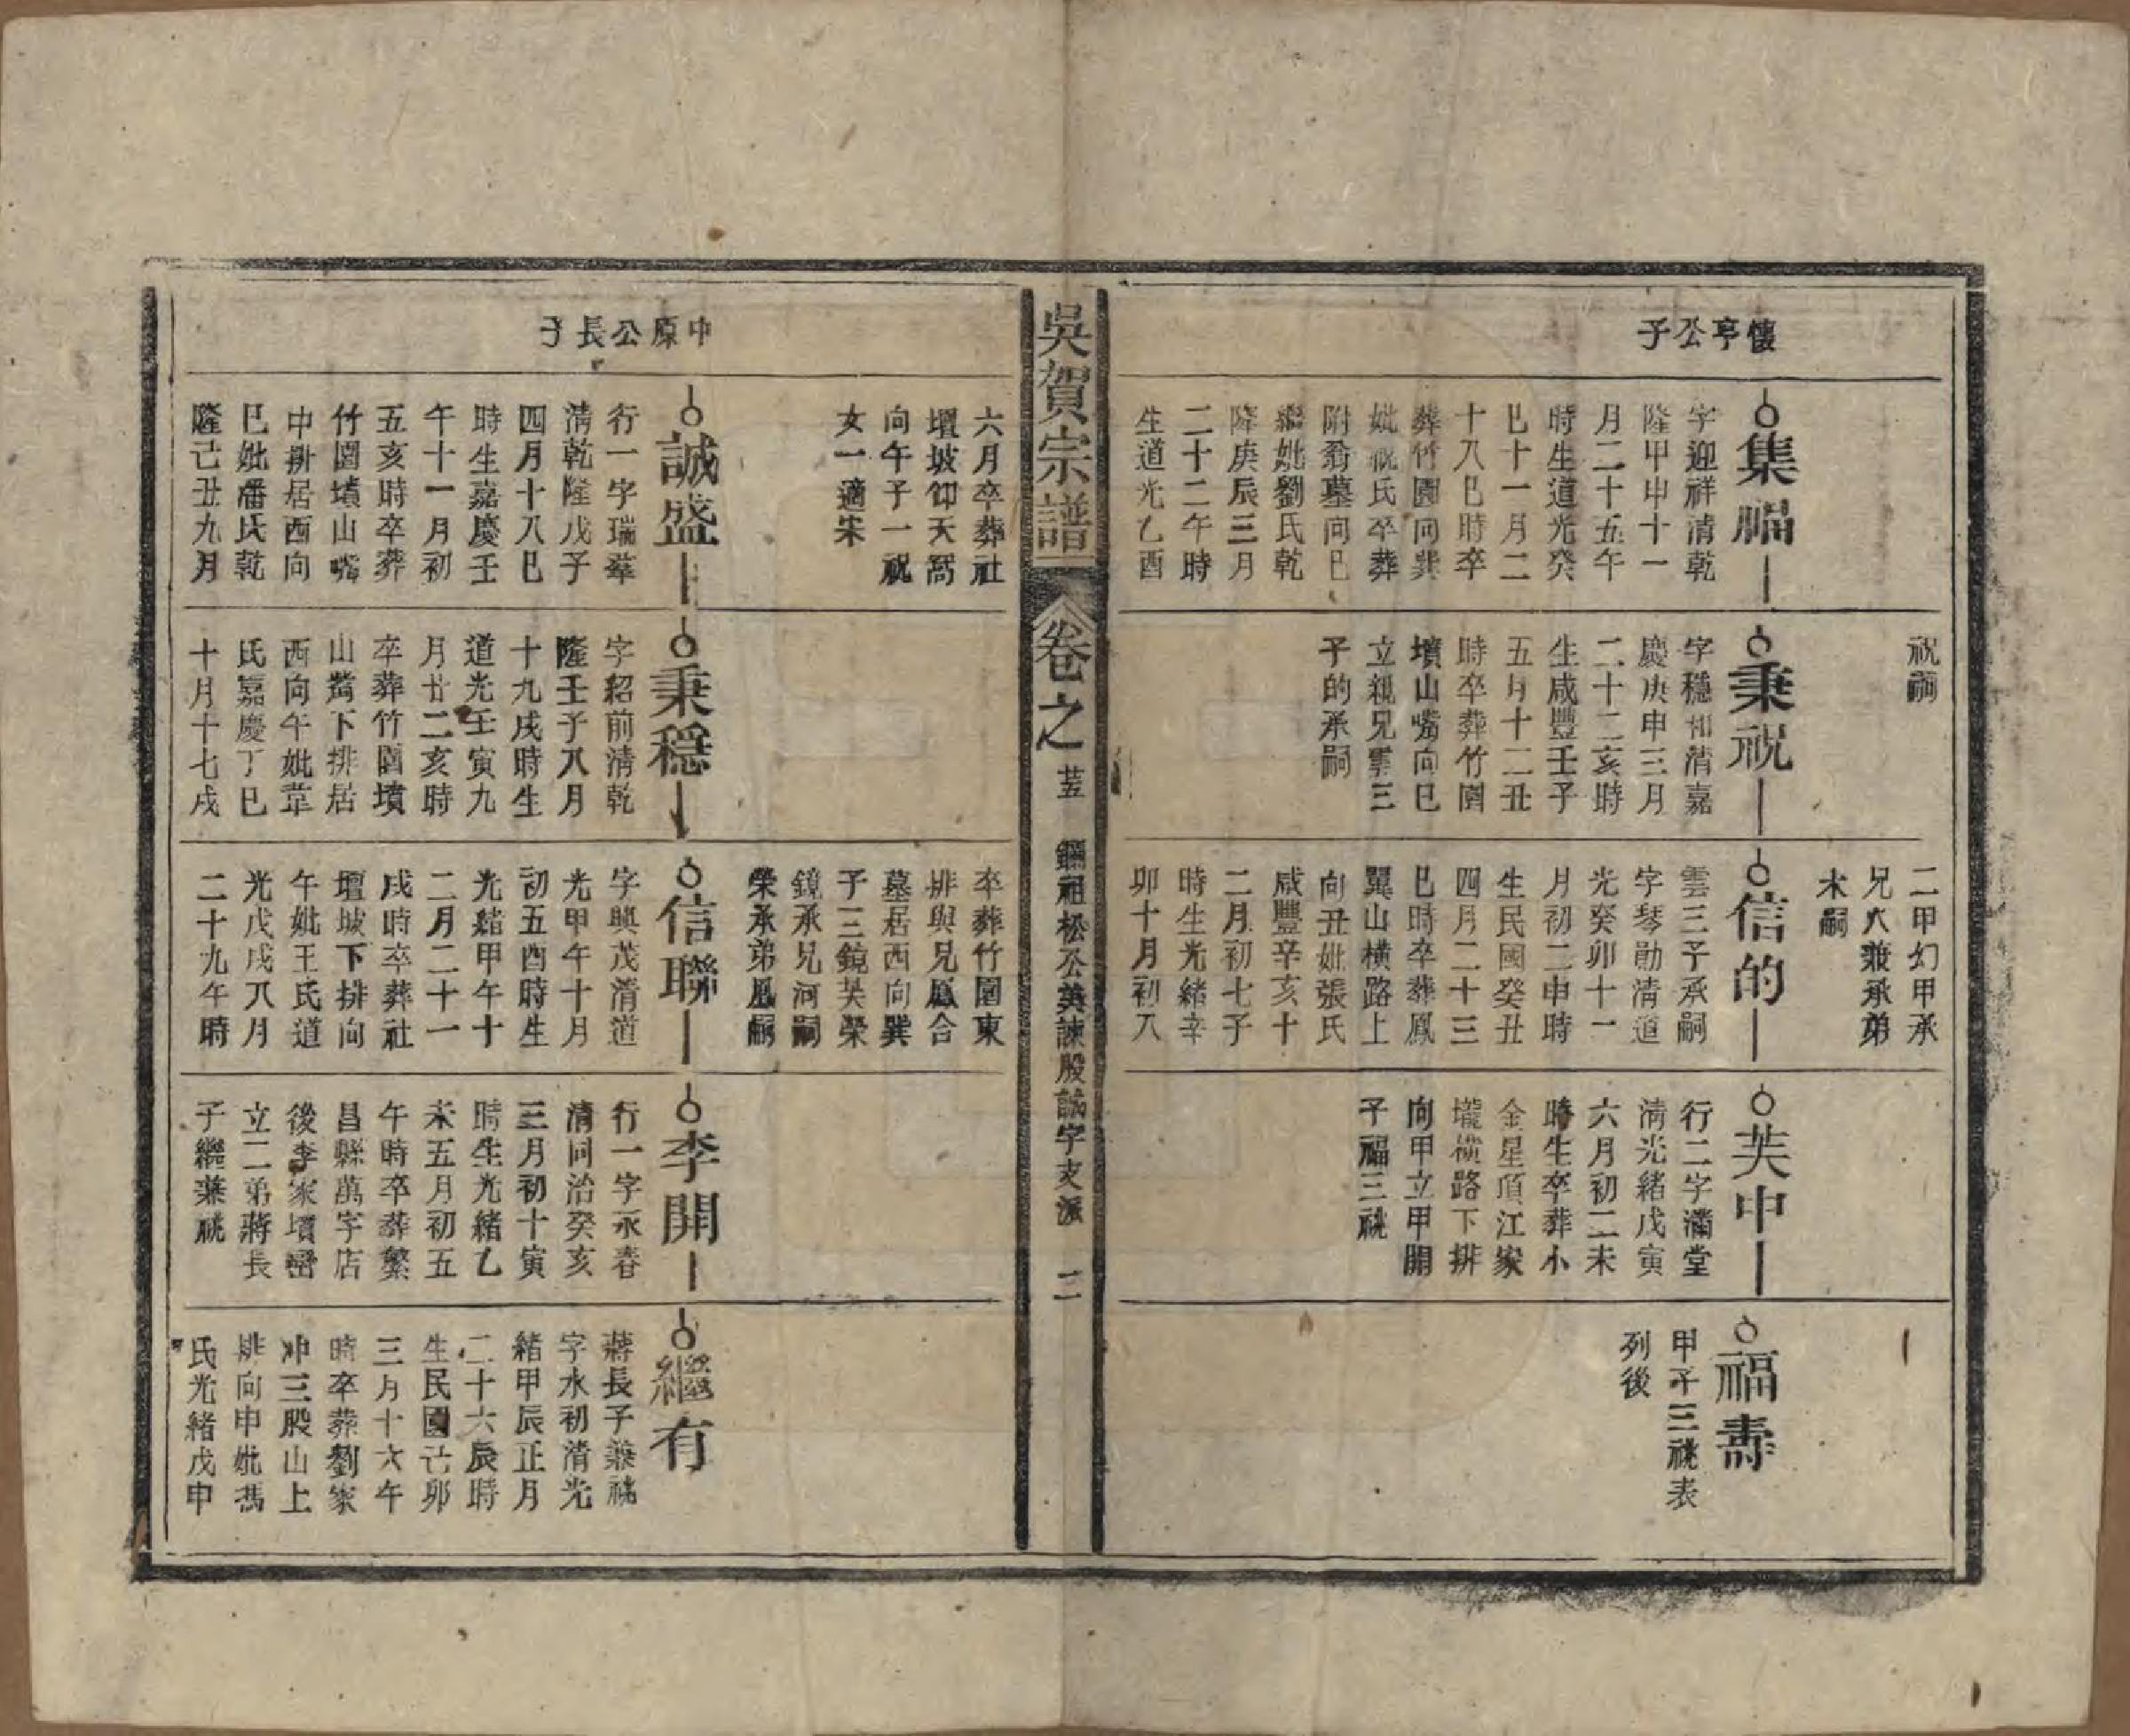 懷亭公子
集福
字迎祥清乾
隆甲申十一
月二十五午
時生道光癸
巳十一月二
十八巳時卒
葬竹園向巽
妣祝氏卒葬
附翁墓向巳
繼妣劉氏乾
隆庚辰三月
二十二午時
生道光乙酉
祝嗣
秉祝
字穩和清嘉
慶庚申三月
二十二亥時
生咸豐壬子
五月十二丑
時卒葬竹園
墳山嘴向巳
立親兄雲三
子的承嗣
二甲幻甲承
兄大兼承弟
未嗣
信的
雲三子承嗣
字琴勛清道
光癸卯十一
月初二申時
生民國癸丑
四月二十三
巳時卒葬鳳
翼山橫路上
向丑妣張氏
咸豐辛亥十
二月初七子
時生光緒辛
卯十月初八
芙中
行二字滿堂
清光緒戊寅
六月初二未
時生卒葬小
金星項江家
壠橫路下排
向甲立甲開
子福三祧
福壽
甲子三祧表
列後
吳賀宗譜
卷之
荳
鏰祖松公英諫股誠字支派
二
六月卒葬社
壇坡仰天窩
向午子一祝
女一適宋
卒葬竹園東
排與兄鳳合
墓居西向巽
子三鏡芙榮
鏡承兄河嗣
榮承弟鳳嗣
中原公長子
誠盛
行一字瑞羣
清乾隆戊子
四月十八巳
時生嘉慶壬
午十一月初
五亥時卒葬
竹園墳山嘴
中排居西向
巳妣潘氏乾
隆己丑九月
秉穩
字紹前清乾
隆壬子八月
十九戌時生
道光壬寅九
月廿二亥時
卒葬竹園墳
山嘴下排居
西向午妣葦
氏嘉慶丁巳
十月十七戌
信聯
字興茂清道
光甲午十月
初五酉時生
光緒甲午十
二月二十一
戌時卒葬社
壇坡下排向
午妣王氏道
光戊戌八月
二十九午時
李開
行一字永春
清同治癸亥
三月初十寅
時生光緒乙
未五月初五
午時卒葬繁
昌縣萬字店
後李家墳巒
立二弟蔣長
子繼兼祧
繼有
蔣長子兼祧
字水初清光
緒甲辰正月
二十六辰時
生民國己卯
三月十六午
時卒葬劉家
冲三股山上
排向申妣馮
氏光緒戊申